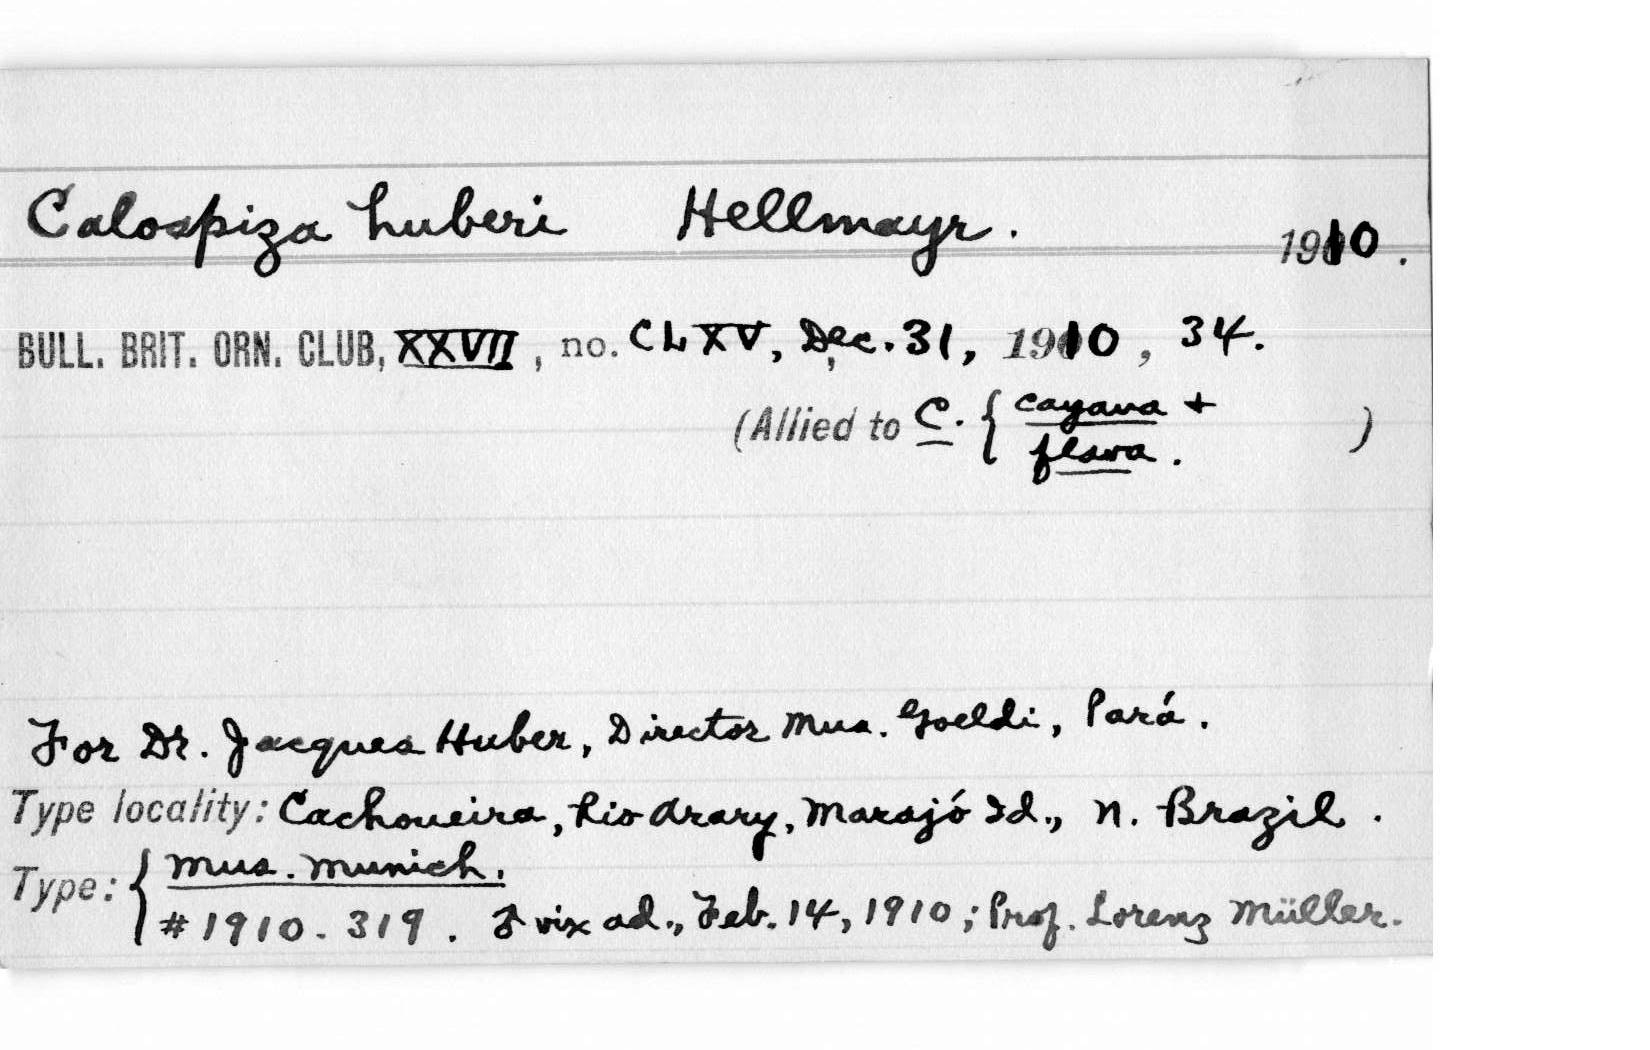 Calospiza huberi Hellmayr. 1910.
BULL. BRIT. ORN. CLUB, XXVII, no. CLXV, Dec. 31, 1910, 34.
(Allied to C. { cayana +
flava. )
For Dr. Jacques Huber, Director Mus. Goeldi, Pará.
Type locality: Cachoueira, Rio Arary, Marajó Id., N. Brazil.
Type: { Mus. Munich.
#1910.319. ♂ vix ad., Feb. 14, 1910; Prof. Lorenz Müller.